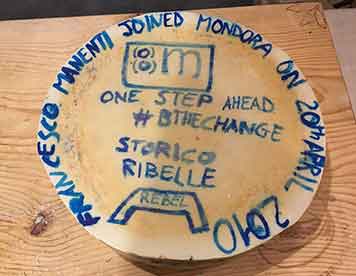 FRANCESCO MANENTI JOINED MONDORA ON 20TH APRIL 2010
m
ONE STEP AHEAD
#BTHECHANGE
STORICO
RIBELLE
REBEL